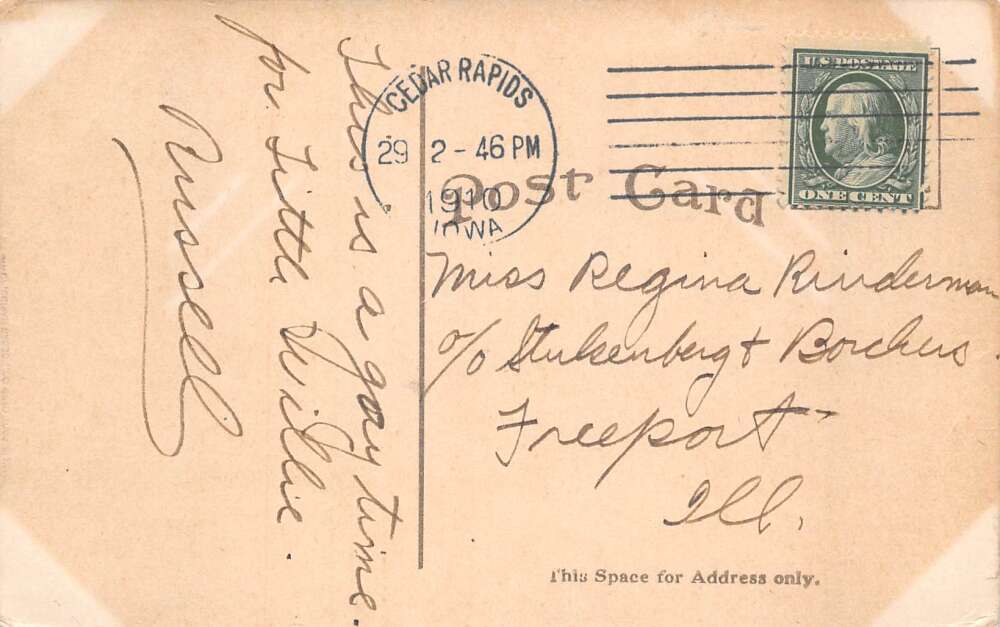 This is a gay time
for Little Willie.
Russell
CEDAR RAPIDS
29 2-46 PM
1910
IOWA
U.S. POSTAGE
ONE CENT
Post Card
Miss Regina Rinderman
c/o Stukenberg & Borchers.
Freeport
Ill.
This Space for Address only.